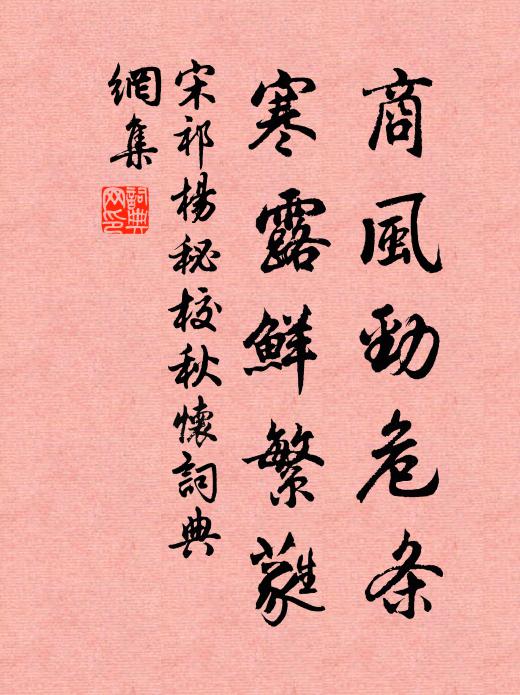 商風勁危条
寒露鮮繁蕤
宋祁楊秘校秋懷詞典
網集
詞典網印